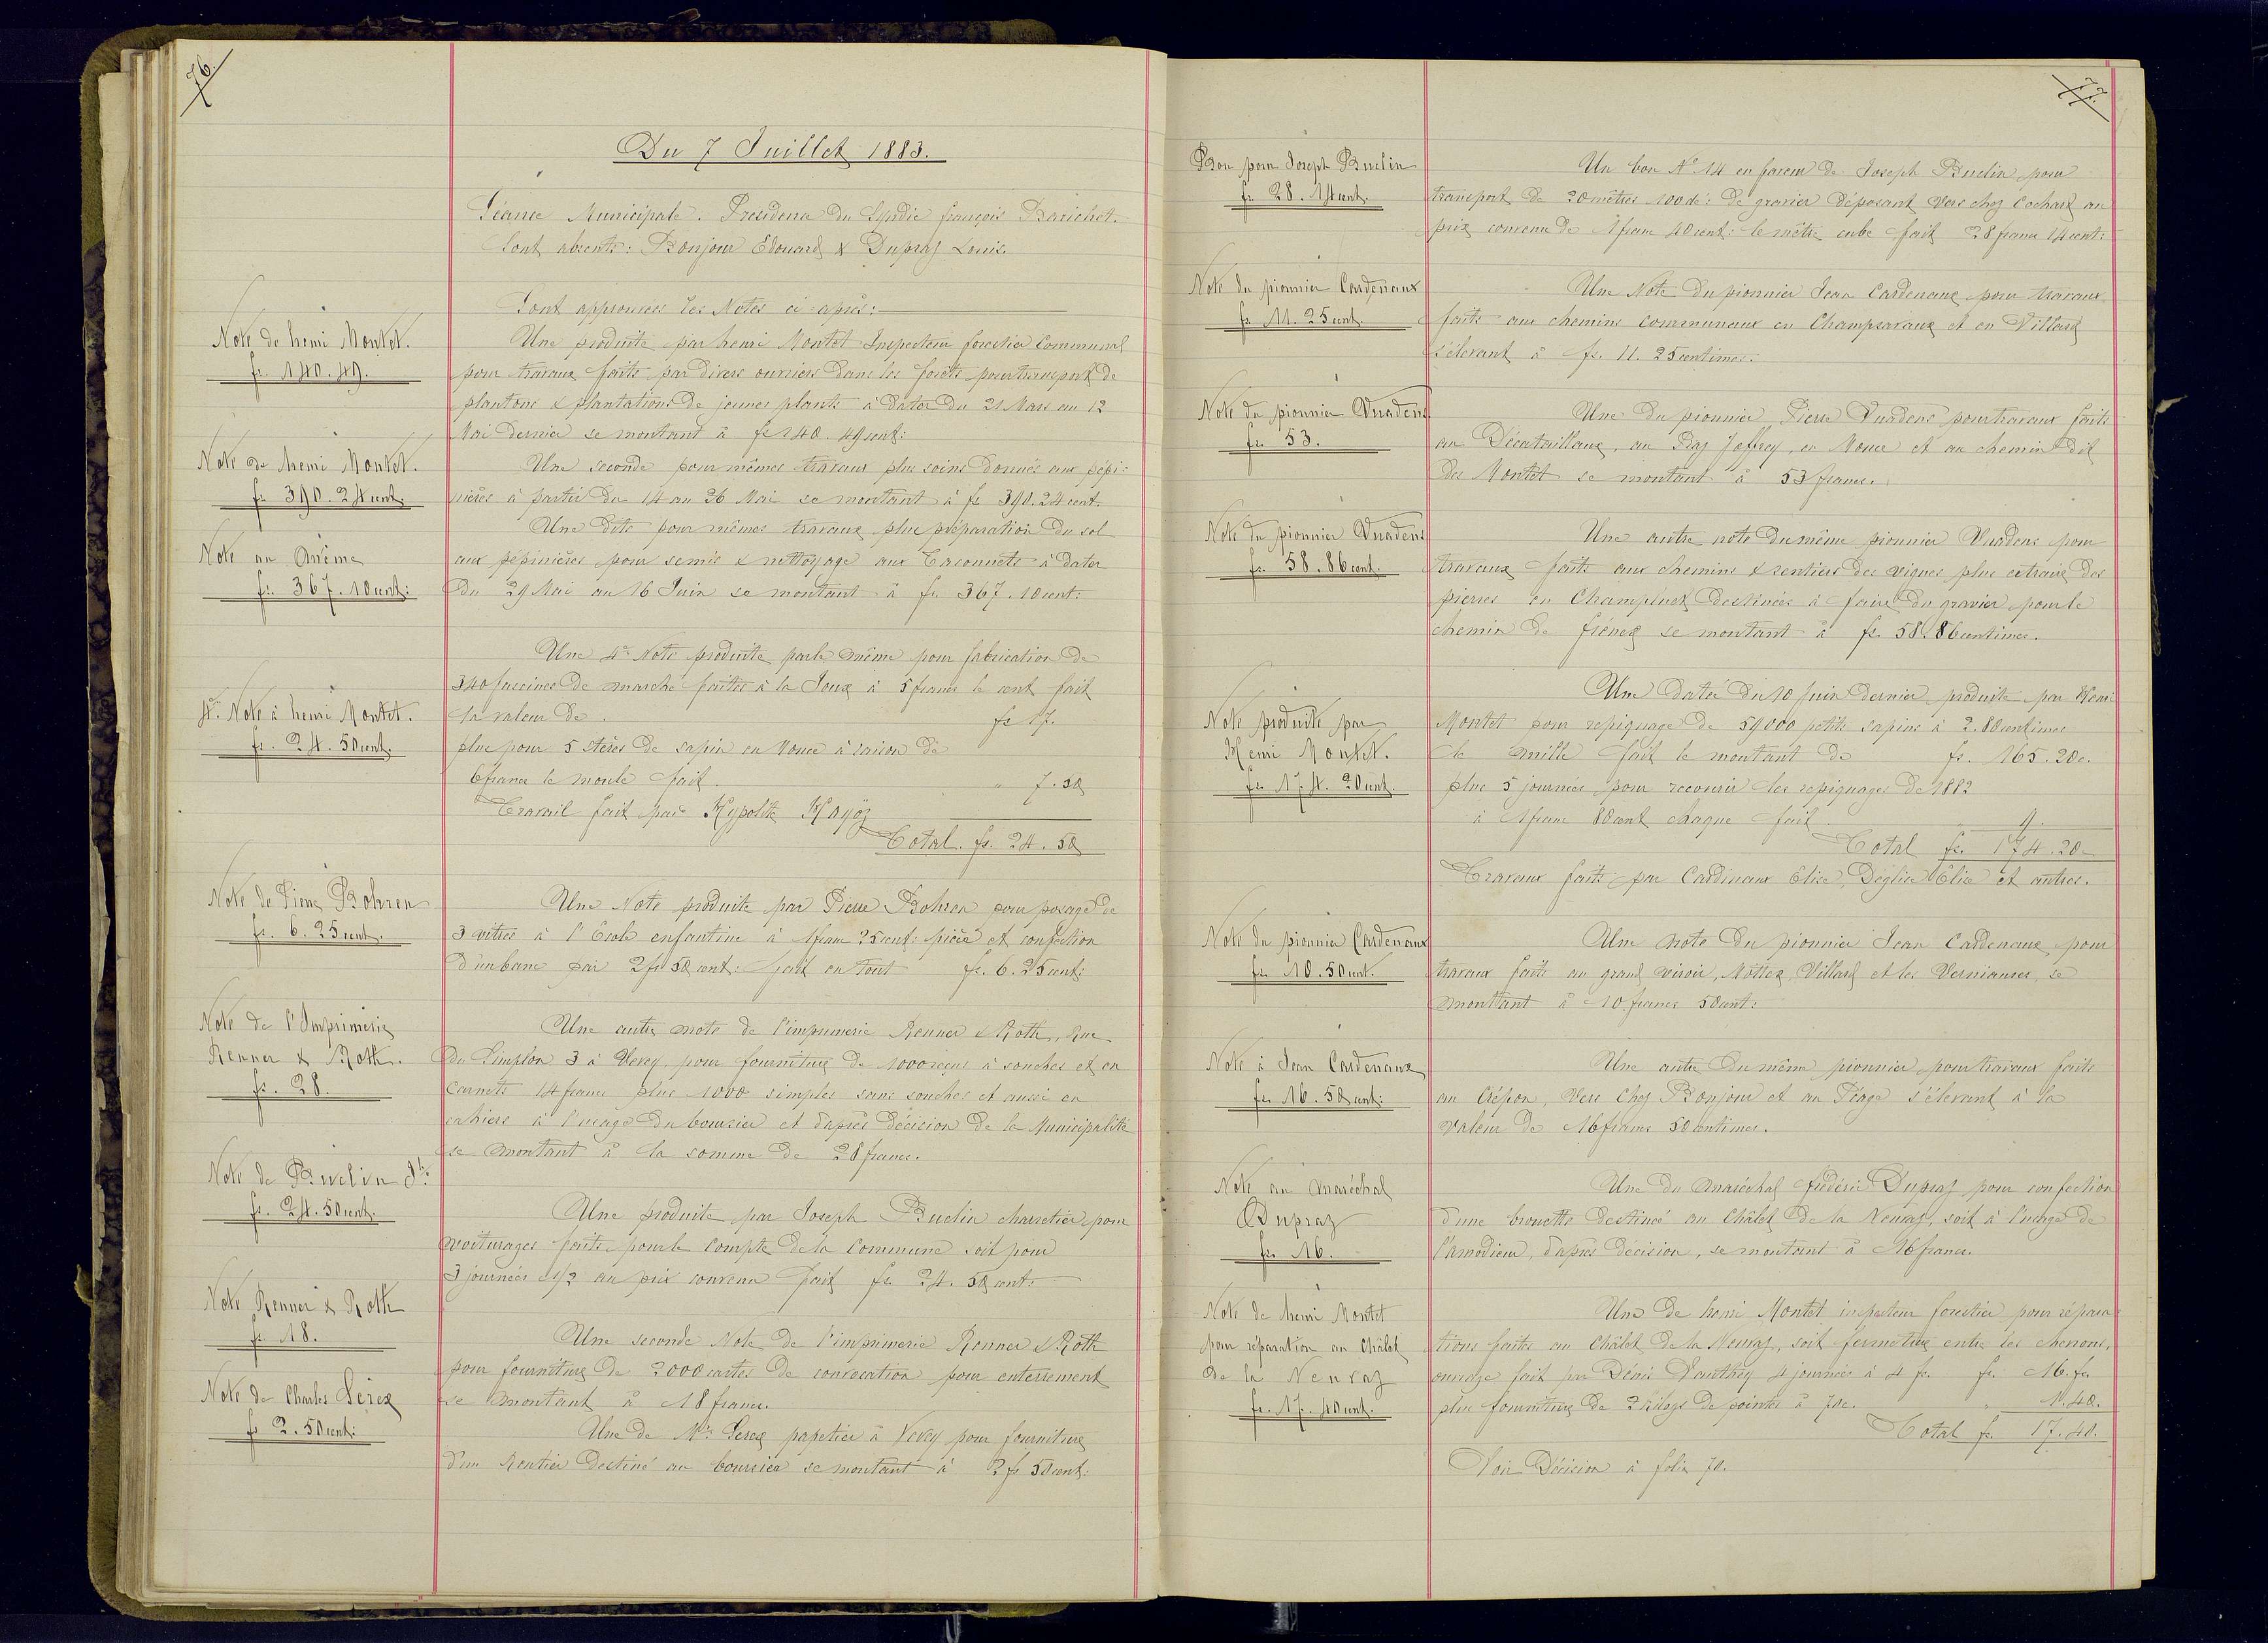 76.
Du 7 Juillet 1883.
Séance Municipale. Présidence du Syndic françois Barichet.
Sont absents: Bonjour Edouard & Dupraz Louis.
Sont approuvées les Notes ci-après:
Note de henri Montet.
fr. 140.49.
Une produite par henri Montet Inspecteur forestier Communal
pour travaux faits par divers ouvriers dans les forêts pour transport de
plantons & plantations de jeunes plants à dater du 21 Mars au 12
Mai dernier se montant à fr 140. 49 cent:
Note de henri Montet.
fr 390.24 cent.
Une seconde pour mêmes travaux plus soins donnés aux pépi:
nières à partir du 14 au 26 Mai se montant à fr 390.24 cent.
Note au même
fr. 367.10 cent:
Une dite pour mêmes travaux plus préparation du sol
aux pépinières pour semis & nettoyage aux Taconnets à dater
du 29 Mai au 16 Juin se montant à fr 367.10 cent:
4e. Note à henri Montet.
fr. 24.50 cent.
Une 4e Note produite par le même pour fabrication de
340 fascines de marche faites à la Joux à 5 francs le cent fait
la valeur de fr 17.
plus pour 5 stères de sapin en Mouce à raison de
6 francs le moule fait. " 7.50
Travail fait par Hypolite Kayöz
Total. fr. 24.50
Note de Pierre Bohren
fr. 6.25 cent.
Une Note produite par Pierre Bohren pour posage de
3 vitres à l'Ecole enfantine à 1 franc 25 cent: pièce et confection
d'un banc par 2 fr 50 cent: fait en tout fr. 6.25 cent:
Note de l'Imprimerie
Renner & Roth.
fr. 28.
Une autre note de l'imprimerie Renner & Roth, Rue
du Simplon 3 à Vevey, pour fourniture de 1000 reçus à souches et en
carnets 14 francs plus 1000 simples sans souches et aussi en
cahiers à l'usage du boursier et d'après décision de la Municipalité
se montant à la somme de 28 francs.
Note de Buclin Jh:
fr. 24.50 cent.
Une produite par Joseph Buclin charretier pour
voiturages faits pour le compte de la Commune soit pour
3 journées 1/2 au prix convenu fait fr 24. 50 cent:
Note Renner & Roth
fr 18.
Une seconde Note de l'imprimerie Renner & Roth
pour fourniture de 2000 cartes de convocation pour enterrement
se montant à 18 francs.
Note de Charles
fr 2.50 cent:
Une de Mr: papetier à Vevey pour fourniture
d'un Rentier destiné au boursier se montant à 2 fr 50 cent:
77.
Bon pour Joseph Buclin
fr 28.14 cent.
Un bon No 14 en faveur de Joseph Buclin pour
transport de 20 mètres 100 dé: de gravier déposant vers chez Cochard au
prix convenu de 1 franc 40 cent: le mètre cube fait 28 francs 14 cent:
Note du pionnier Cardenaux
fr 11.25 cent.
Une Note du pionnier Jean Cardenaux pour travaux
faits aux chemins communaux en Champsavaux et en Villard
s'élevant à fr. 11. 25 centimes:
Note du pionnier Vuadens
fr. 53.
Une du pionnier Pierre Vuadens pour travaux faits
au au Praz Joffrey, en Mouce et au chemin dit
des Montet se montant à 53 francs.
Note du pionnier Vuadens
fr. 58.86 cent.
Une autre note du même pionnier Vuadens pour
travaux faits aux chemins & sentiers des vignes plus extraire des
pierres en Champluet destinées à faire du gravier pour le
chemin de se montant à fr. 58.86 centimes.
Note produite par
Henri Montet.
fr. 174.20 cent.
Une datée du 10 Juin dernier, produite par Henri
Montet pour repiquage de 59000 petits sapins à 2.80 centimes
le mille fait le montant de fr. 165.20 c.
plus 5 journées pour recouvrir les repiquages de 1882
à 1 franc 80 cent chaque fait " 9.
Total fr. 174.20
Travaux faits par Cardinaux Elise, Déglise Elise et autres.
Note du pionnier Cardenaux
fr. 10.50 cent.
Une note du pionnier Jean Cardenaux pour
travaux faits au grand viroir, Mottex, Villard et les Verniauses, se
montant à 10 francs 50 cent:
Note à Jean Cardenaux
fr. 16.50 cent:
Une autre du même pionnier pour travaux faits
au Crépon, Vers chez Bonjour et au Péage s'élevant à la
valeur de 16 francs 50 centimes.
Note au Maréchal
Dupraz
fr. 16.
Une du Maréchal fréderic Dupraz pour confection
d'une brouette destinée au Châlet de la Neuvaz, soit à l'usage de
l'amodieur, d'après décision, se montant à 16 francs.
Note de henri Montet
pour réparation au Châlet
de la Neuvaz
fr. 17.40 cent.
Une de henri Montet inspecteur forestier pour répara
tions faites au Châlet de la Neuvaz, soit fermeture entre les chevrons,
ouvrage fait par Dénis Vauthey 4 journées à 4 fr. fr. 16. fr
plus fourniture de 2 kilogs de pointes à 70 c. " 1.40.
Total fr. 17.40.
Voir Décision à folio 70.